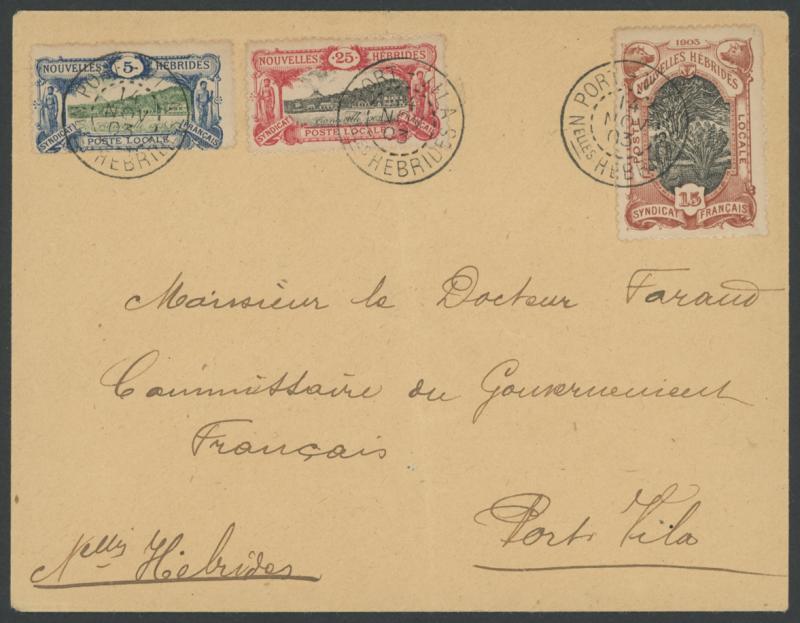 NOUVELLES 5 HÉBRIDES
SYNDICAT FRANÇAIS
POSTE LOCALE
NOUVELLES 25 HÉBRIDES
SYNDICAT FRANÇAIS
POSTE LOCALE
1903
NOUVELLES HÉBRIDES
POSTE LOCALE
15
SYNDICAT FRANÇAIS
PORT VILA
14
NOV
03
Nelles HEBRIDES
Monsieur le Docteur Faraud
Commissaire du Gouvernement
Français
Port Vila
Nelles Hébrides